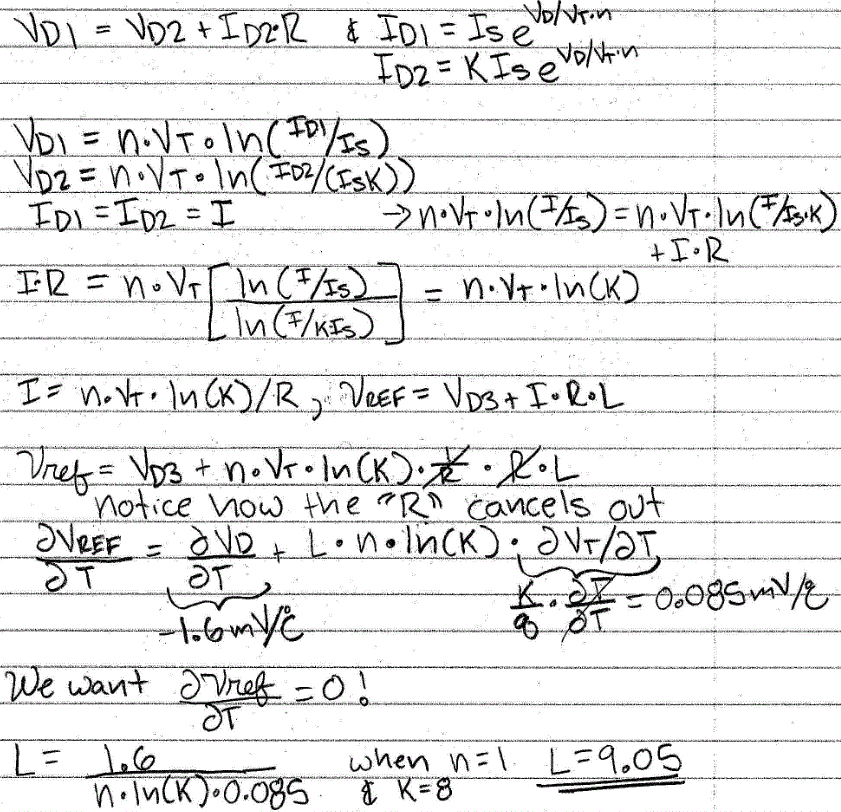 VD1 = VD2 + ID2·R & ID1 = Is e^VD/VT·n
ID2 = K Is e^VD/VT·n
VD1 = n·VT·ln(ID1/Is)
VD2 = n·VT·ln(ID2/(IsK))
ID1 = ID2 = I → n·VT·ln(I/Is) = n·VT·ln(I/Is·K)
+ I·R
I·R = n·VT [ln(I/Is) / ln(I/KIs)] = n·VT·ln(K)
I = n·VT·ln(K)/R, VREF = VD3 + I·R·L
Vref = VD3 + n·VT·ln(K)·1/R·R·L
notice how the "R" cancels out
∂VREF/∂T = ∂VD/∂T + L·n·ln(K)·∂VT/∂T
-1.6mV/°C K/q·∂T/∂T = 0.085mV/°C
We want ∂Vref/∂T = 0!
L = 1.6 / n·ln(K)·0.085 when n=1 & K=8 L=9.05